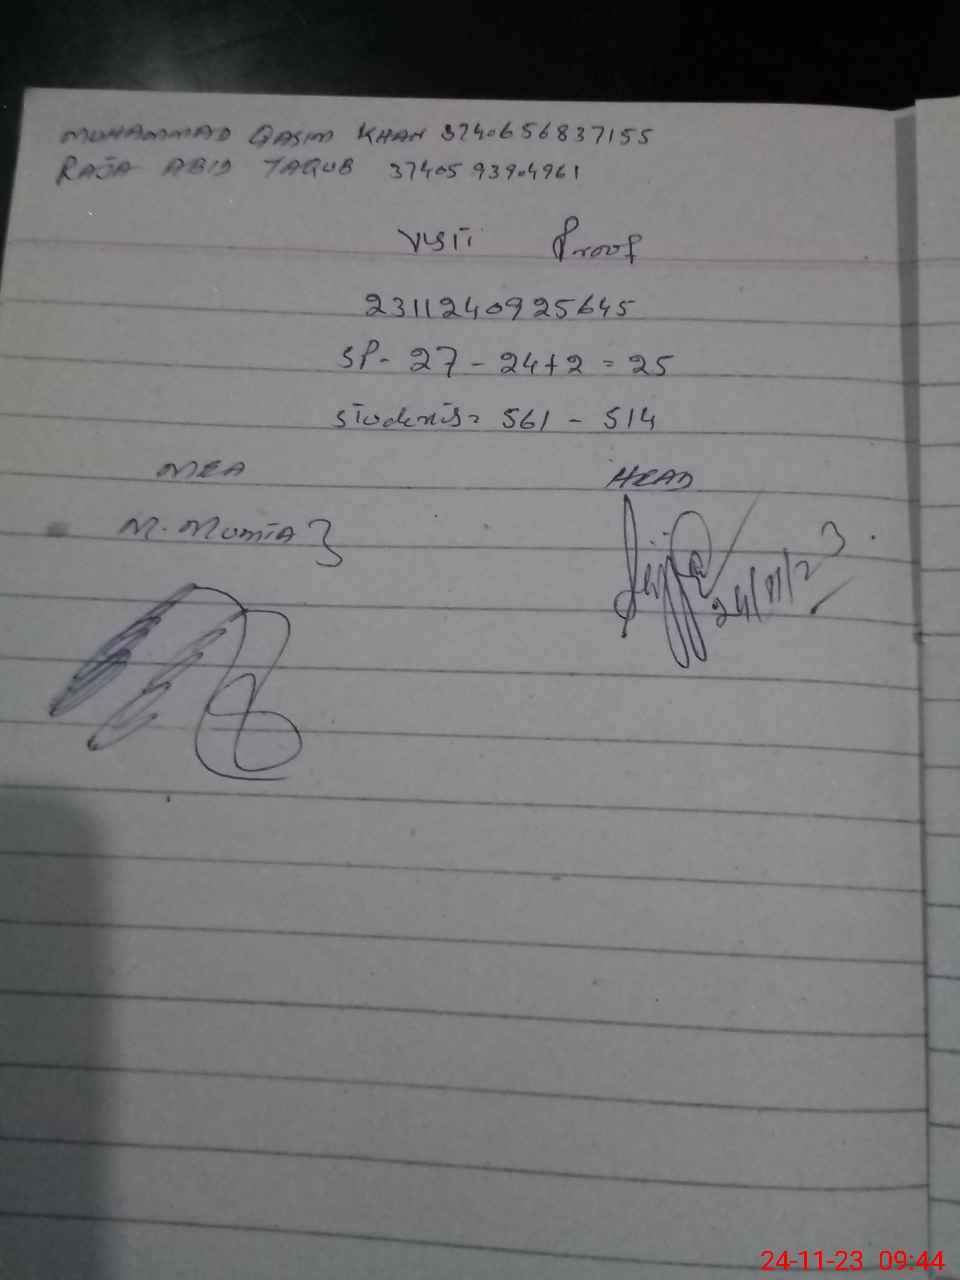 MUHAMMAD QASIM KHAN 3740656837155
RAJA ABID YAQUB 3740593904961
VISIT Proof
2311240925645
SP- 27 - 24+2 = 25
Students= 561 - 514
MEA
HEAD
M. Mumtaz
24/11/23
24-11-23 09:44